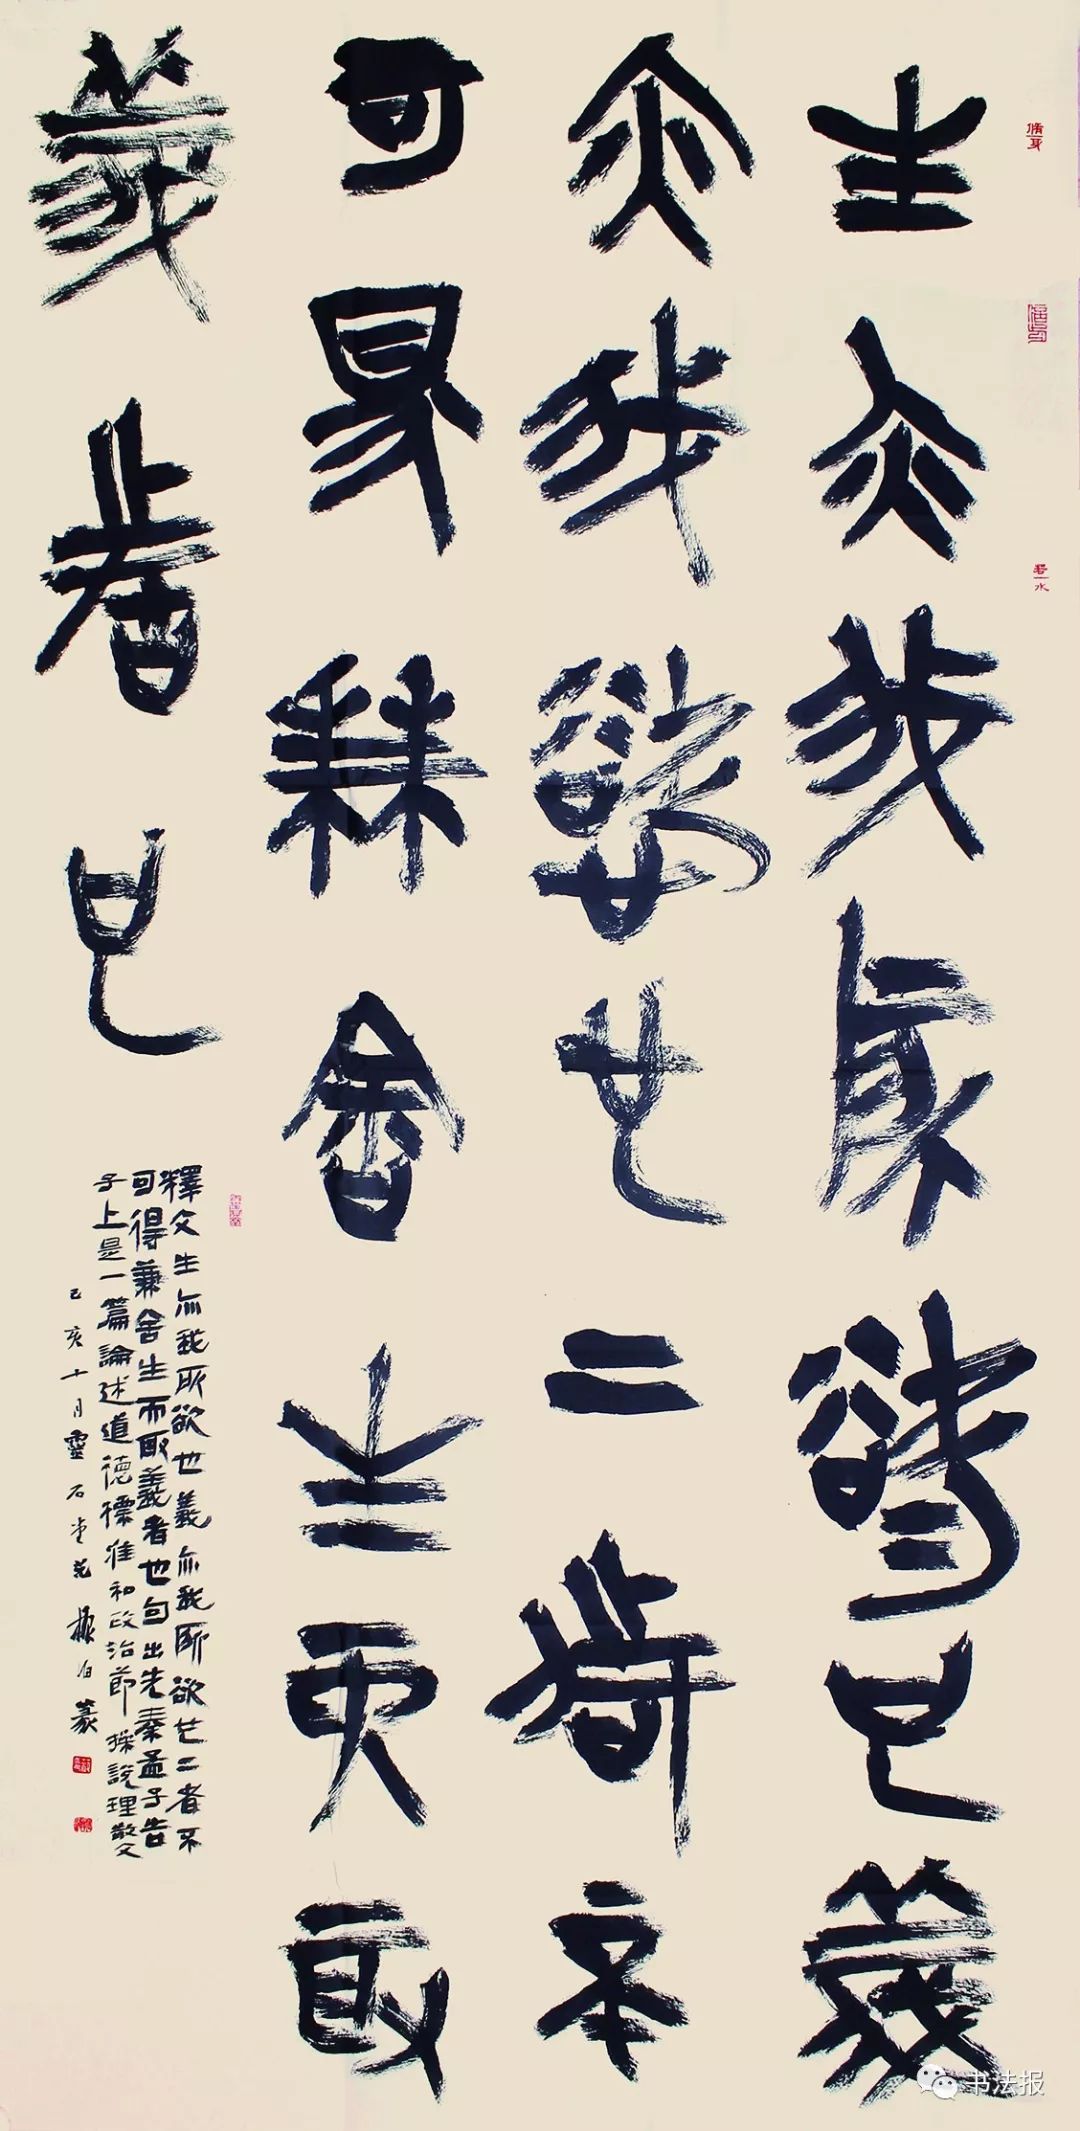 生亦我所欲也義
亦我欲也二者不
可得兼舍生而取
義者也
釋文生亦我所欲也義亦我所欲也二者不
可得兼舍生而取義者也句出先秦孟子告
子上是一篇論述道德標准和政治節操說理散文
己亥十月靈石堂 振伯篆
脩身
书法报